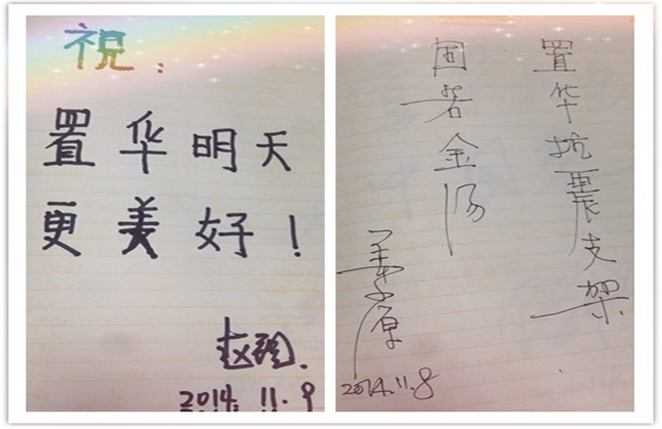 祝:
置华明天
更美好!
赵
2014. 11. 9
置华抗震支架
固若金汤
2014.11.8